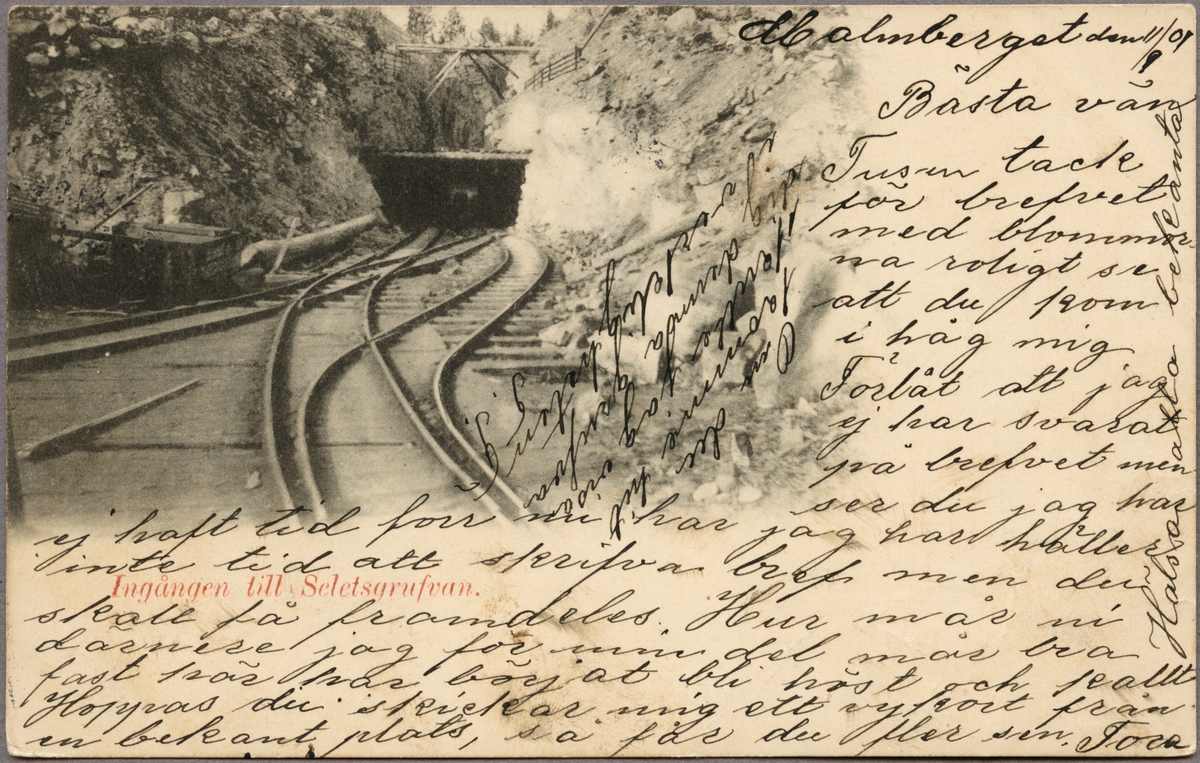 Malmberget den 11/9 01
Bästa vän
Tusen tack
för brefvet
med blommor
na roligt se
att du kom
i håg mig
Förlåt att jag
ej har svarat
på brefvet men
ser du jag har
ej haft tid förr nu har jag har häller
inte tid att skrifva bref men du
skall få framdeles. Hur mår ni
därnere jag för min del mår bra
fast här har börjat bli höst och kallt
Hoppas du skickar mig ett vykort från
en bekant plats, så får du fler sen. Tora
Hälsa alla bekanta
Ingången till Seletsgrufvan.